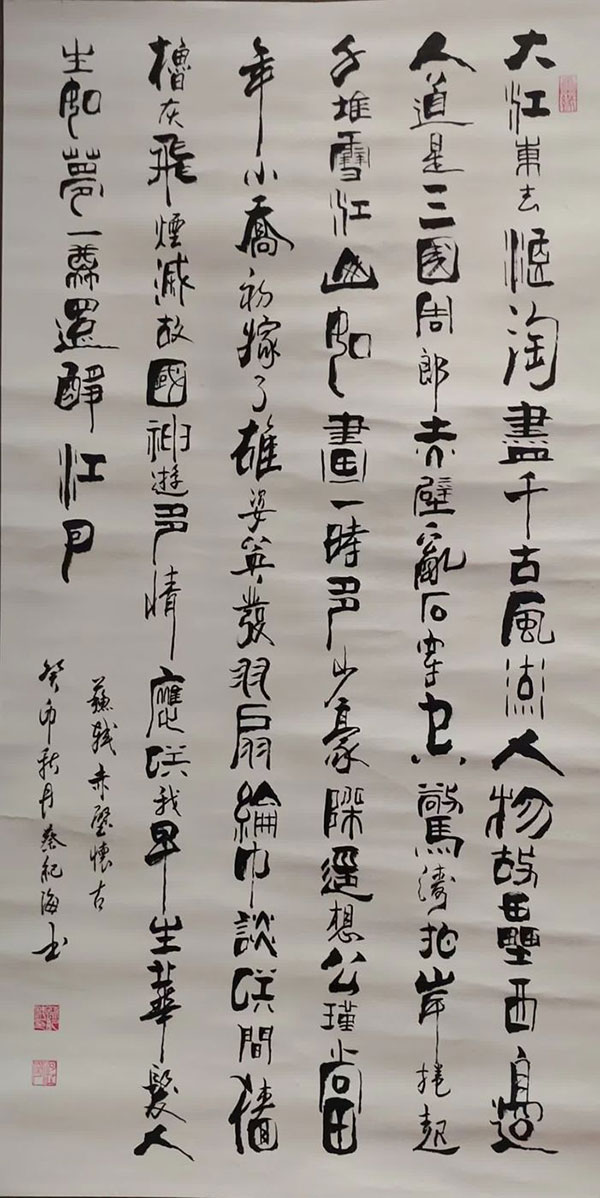 大江東去浪淘盡千古風流人物故壘西邊
人道是三國周郎赤壁亂石穿空驚濤拍岸捲起
千堆雪江山如畫一時多少豪傑遥想公瑾當
年小喬初嫁了雄姿英發羽扇綸巾談咲間檣
櫓灰飛煙滅故國神遊多情應咲我早生華髮人
生如夢一尊還酹江月
蘇軾赤壁懷古
癸卯秋月紀海書